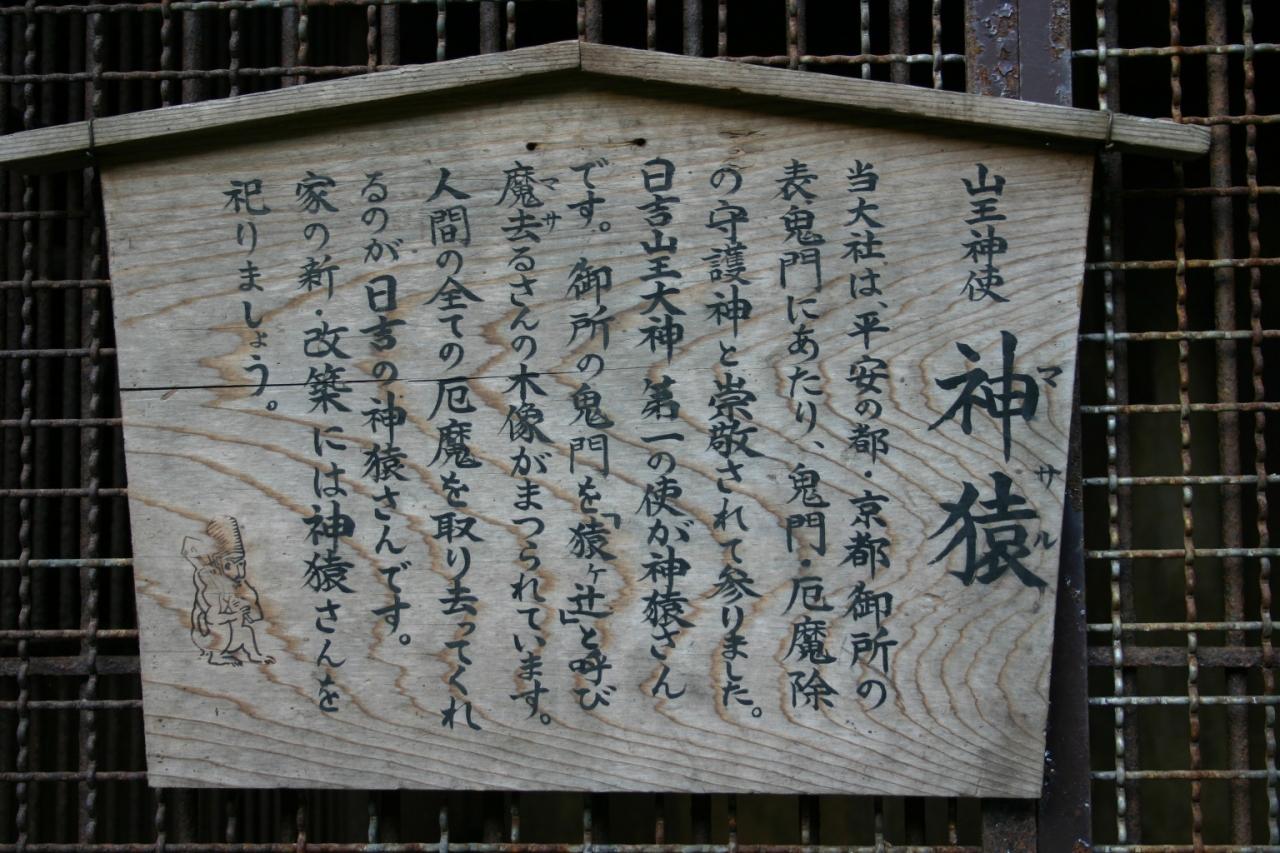 山王神使 神猿
マサル
当大社は、平安の都・京都御所の
表鬼門にあたり、鬼門・厄魔除
の守護神と崇敬されて参りました。
日吉山王大神 第一の使が神猿さん
です。御所の鬼門を「猿ヶ辻」と呼び
魔去るさんの木像がまつられています。
マサ
人間の全ての厄魔を取り去ってくれ
るのが日吉の神猿さんです。
家の新・改築には神猿さんを
祀りましょう。